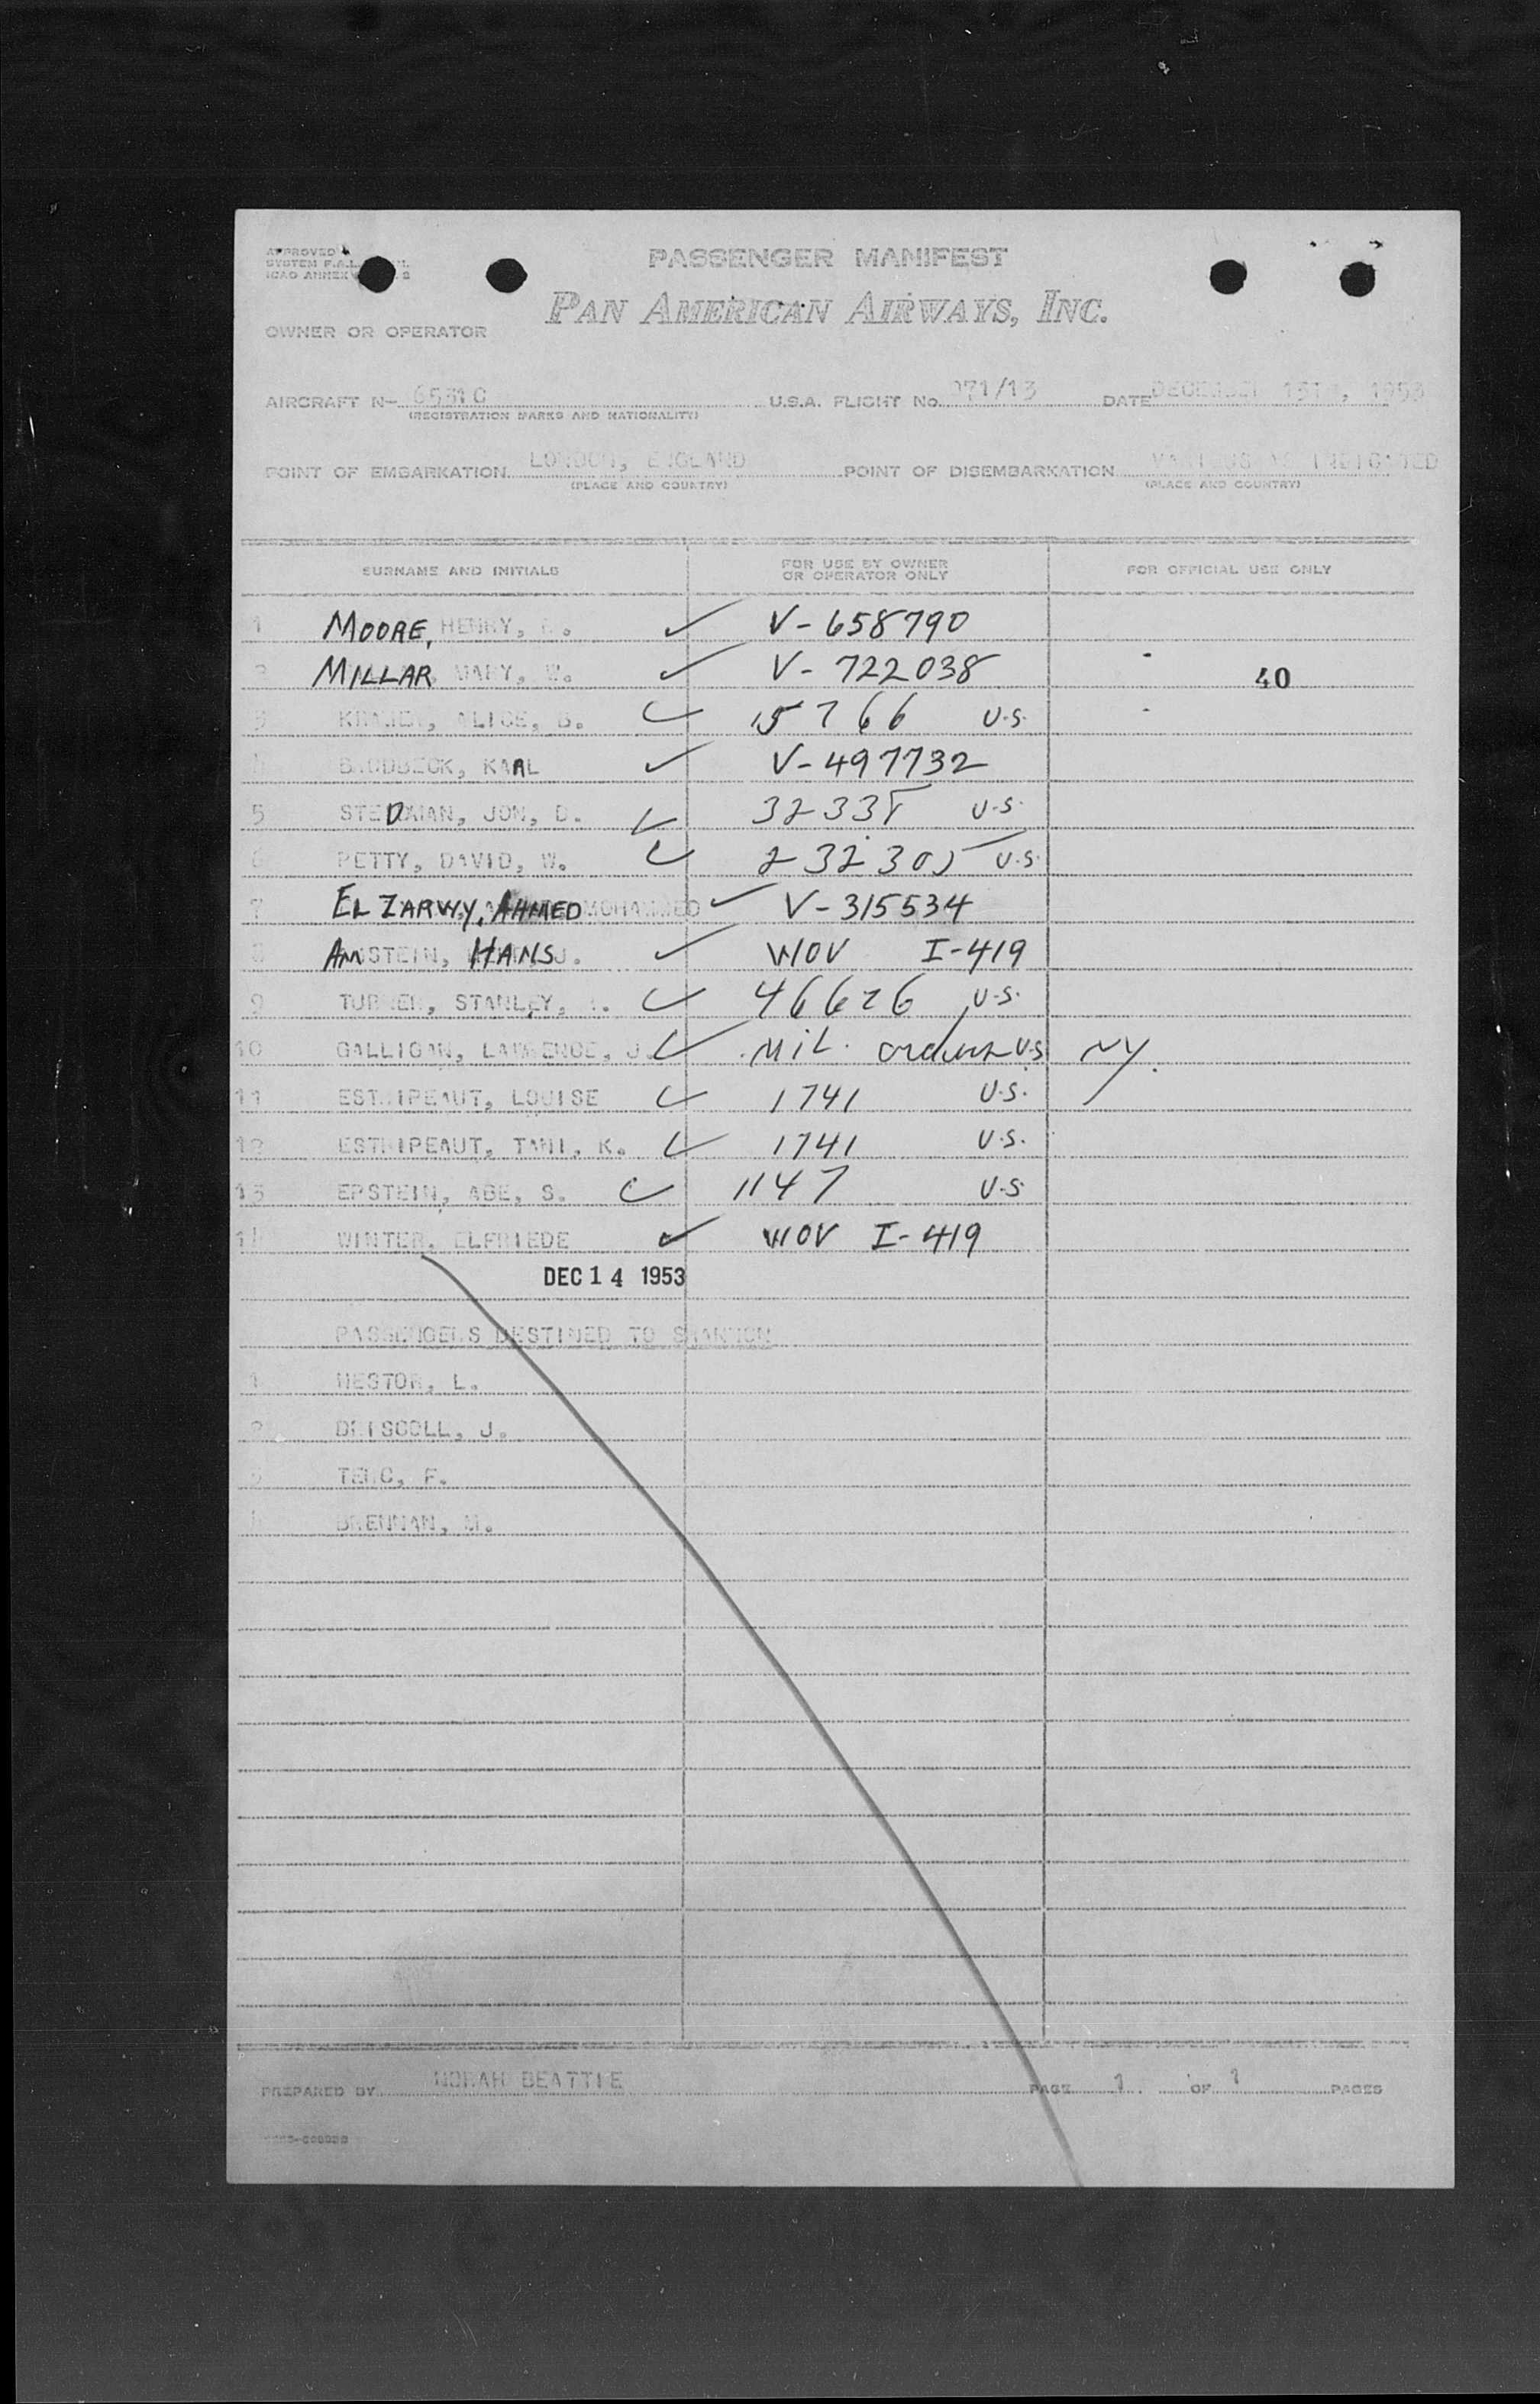 APPROVED
SYSTEM F.A.L.
ICAO ANNEX
PASSENGER MANIFEST
PAN AMERICAN AIRWAYS, INC.
OWNER OR OPERATOR
AIRCRAFT N- 6531C U.S.A. FLIGHT No. 071/13 DATE DECEMBER 13TH, 1953
(REGISTRATION MARKS AND NATIONALITY)
POINT OF EMBARKATION LONDON, ENGLAND POINT OF DISEMBARKATION VARIOUS AS INDICATED
(PLACE AND COUNTRY) (PLACE AND COUNTRY)
SURNAME AND INITIALS FOR USE BY OWNER OR OPERATOR ONLY FOR OFFICIAL USE ONLY
1 MOORE, HENRY, ✓ V-658790
2 MILLAR MARY, W. ✓ V-722038 40
3 ALICE, B. ✓ 15766 U.S.
4 BRODBECK, KARL ✓ V-497732
5 STEDMAN, JON, D. ✓ 32335 U.S.
6 PETTY, DAVID, W. ✓ 232305 U.S.
7 EL ZARWY, AHMED MOHAMMED ✓ V-315534
8 AMSTEIN, HANS J. ✓ WOV I-419
9 TURNER, STANLEY, ✓ 46626 U.S.
10 GALLIGAN, LAWRENCE, J. ✓ MIL. orders U.S. NY.
11 ESTRIPEAUT, LOUISE ✓ 1741 U.S.
12 ESTRIPEAUT, TANI, K. ✓ 1741 U.S.
13 EPSTEIN, ABE, S. ✓ 1147 U.S.
14 WINTER, ELFRIEDE ✓ WOV I-419
DEC 14 1953
PASSENGERS DESTINED TO SHANNON
1 NESTOR, L.
2 DRISCOLL, J.
3 F.
4 BRENNAN, M.
PREPARED BY NORAH BEATTIE PAGE 1 OF 1 PAGES